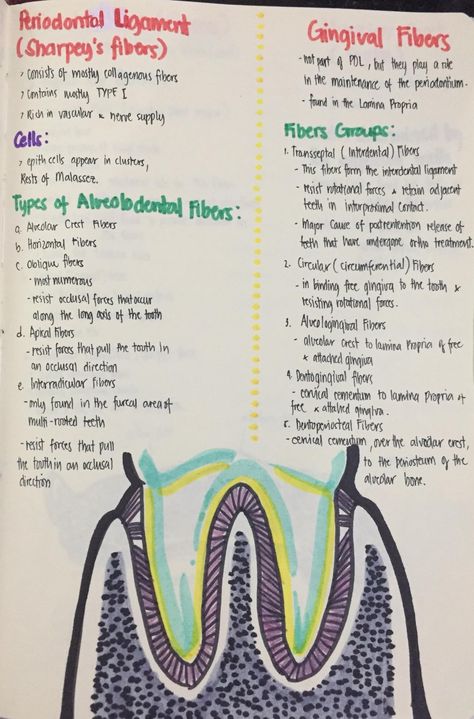 Periodontal Ligament
(Sharpey's fibers)
> Consists of mostly collagenous fibers
> Contains mostly TYPE I
> Rich in vascular & nerve supply
Cells:
> epith cells appear in clusters,
Rests of Malassez.
Types of Alveolodental Fibers:
a. Alveolar Crest Fibers
b. Horizontal Fibers
c. Oblique fibers
- most numerous
- resist occlusal forces that occur
along the long axis of the tooth
d. Apical Fibers
- resist forces that pull the tooth in
an occlusal direction
e. Interradicular fibers
- only found in the furcal area of
multi-rooted teeth
- resist forces that pull
the tooth in an occlusal
direction
Gingival Fibers
- not part of PDL, but they play a role
in the maintenance of the periodontium.
- found in the Lamina Propria
Fibers Groups:
1. Transseptal (Interdental) Fibers
- This fibers form the interdental ligament
- resist rotational forces & retain adjacent
teeth in interproximal contact.
- Major Cause of postretention release of
teeth that have undergone ortho treatment.
2. Circular (circumferential) Fibers
- in binding free gingiva to the tooth &
resisting rotational forces.
3. Alveologingival Fibers
- alveolar crest to lamina Propria of free
& attached gingiva
4. Dentogingival fibers
- cervical cementum to lamina Propria of
free & attached gingiva.
5. Dentoperiosteal Fibers
- cervical cementum, over the alveolar crest,
to the periosteum of the
alveolar bone.